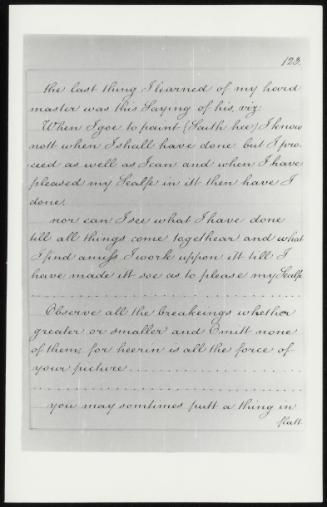 123.
the last thing I learned of my hord
master was this Saying of his, viz:
When I goe to paint (Saith hee) I know
nott when I shall have done but I pro,
ceed as well as I can and when I have
pleased my Sealfe in itt then have I
done.
nor can I see what I have done
till all things come togethear and what
I find amiss I work uppon itt till I
have made itt soe as to please my Sealfe
Observe all the breakeings whethor
greater or smaller and Omitt none
of them; for heerin is all the force of
your picture
you may somtimes putt a thing in
flatt